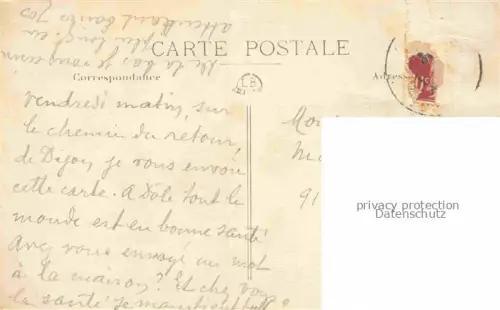 CARTE POSTALE
Correspondance
Adresse
vendredi matin, sur
le chemin du retour,
de Dijon, je vous envoie
cette carte. A Dôle tout le
monde est en bonne santé
Avez vous envoyé un mot
à la maison? Et chez vous
la santé se maintient
De la bas je vous écrirai
plus long, en
attendant
privacy protection
Datenschutz
91